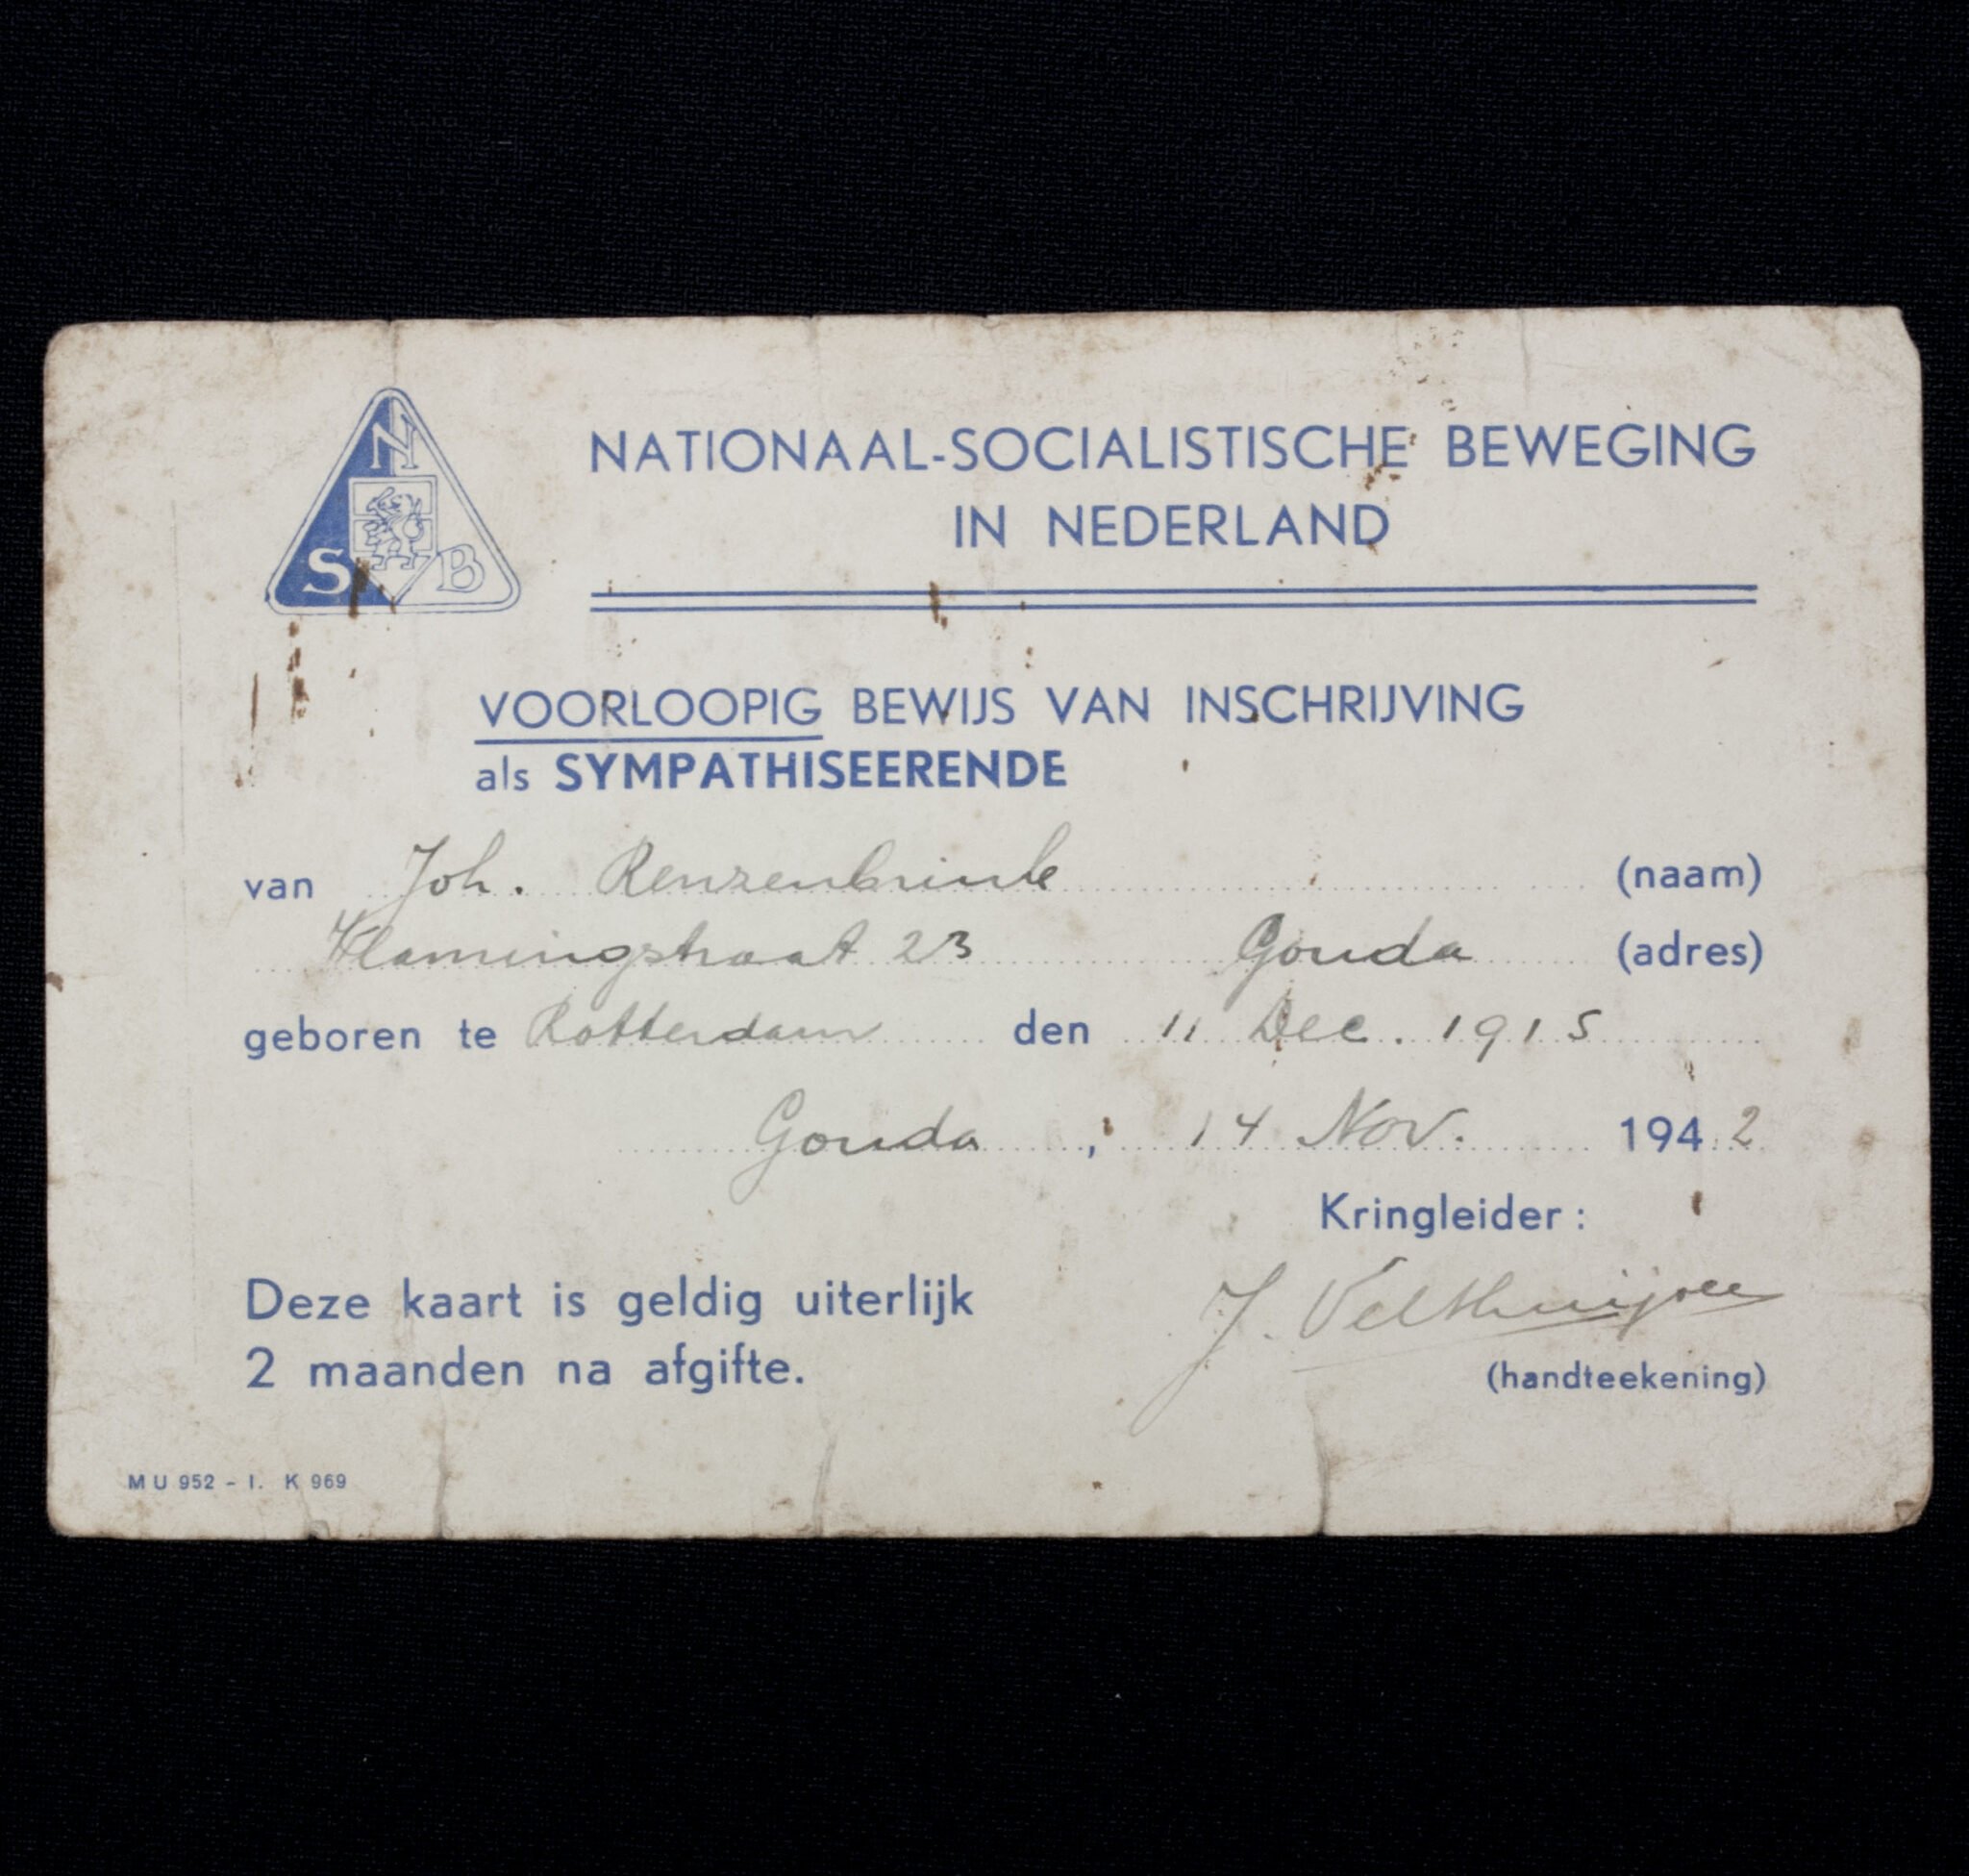 N
S B
NATIONAAL-SOCIALISTISCHE BEWEGING
IN NEDERLAND
VOORLOOPIG BEWIJS VAN INSCHRIJVING
als SYMPATHISEERENDE
van Joh. Renzenbrink (naam)
Vlamingstraat 23 Gouda (adres)
geboren te Rotterdam den 11 Dec. 1915
Gouda, 14 Nov. 1942
Kringleider:
Deze kaart is geldig uiterlijk
2 maanden na afgifte.
J. Velthuijsen
(handteekening)
MU 952 - I. K 969